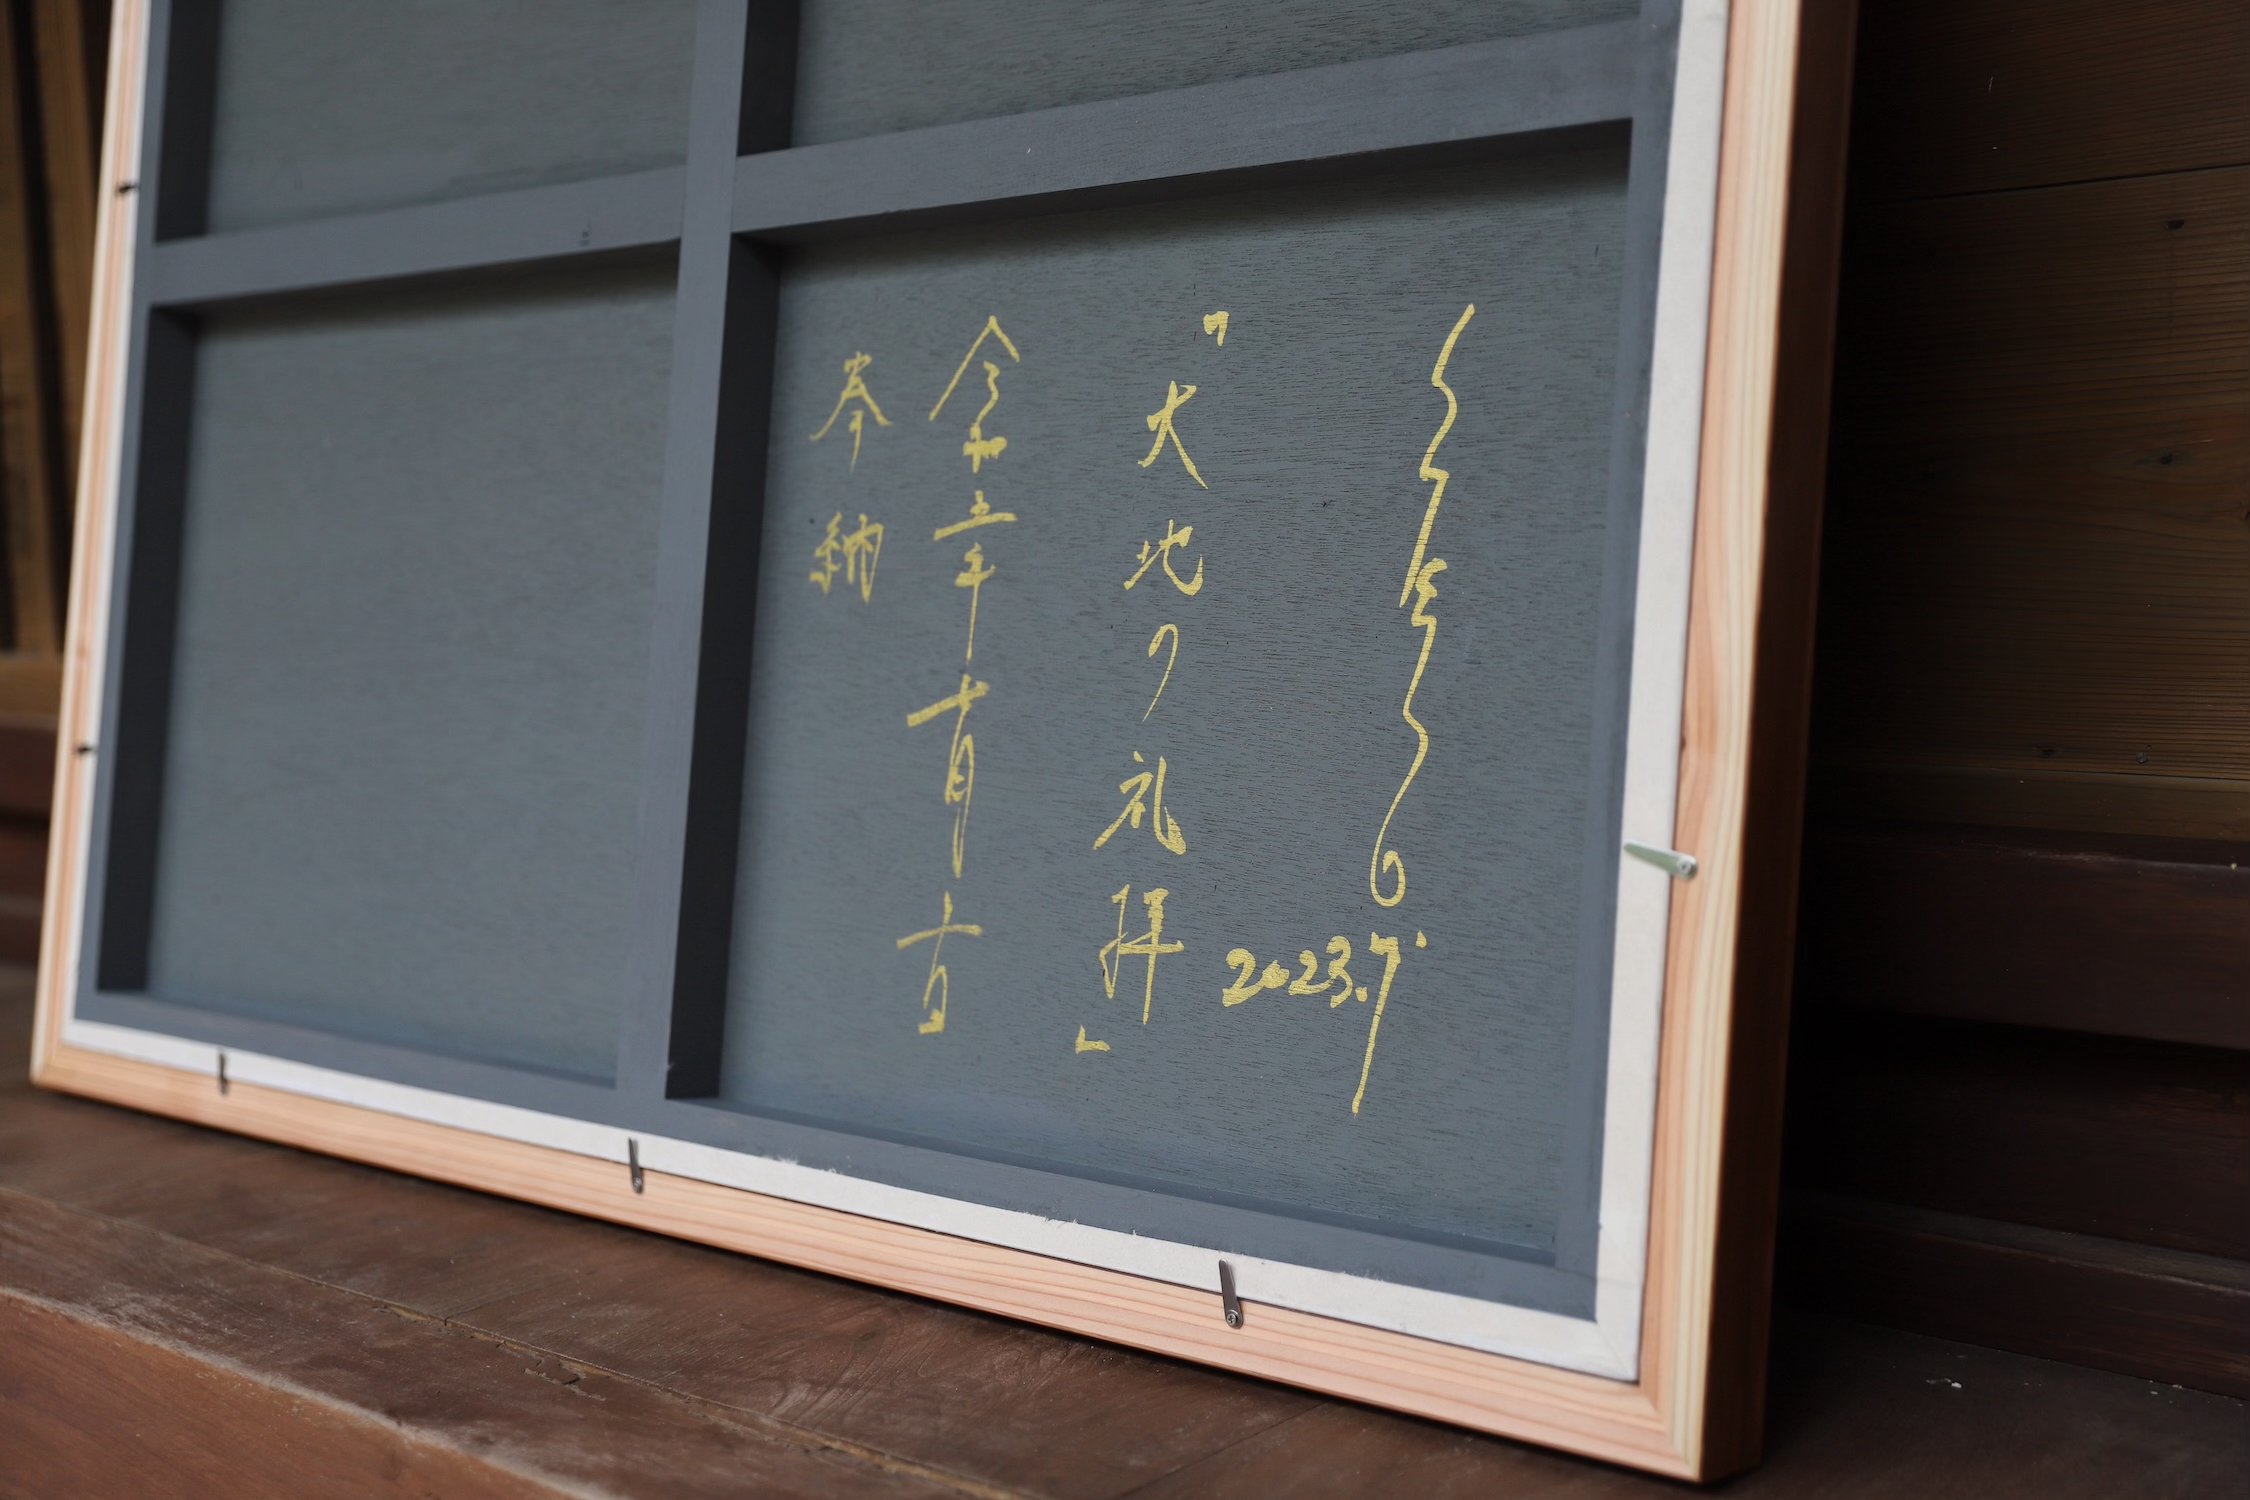 2023.7
『大地の礼拝』
令和五年十月十日
奉納